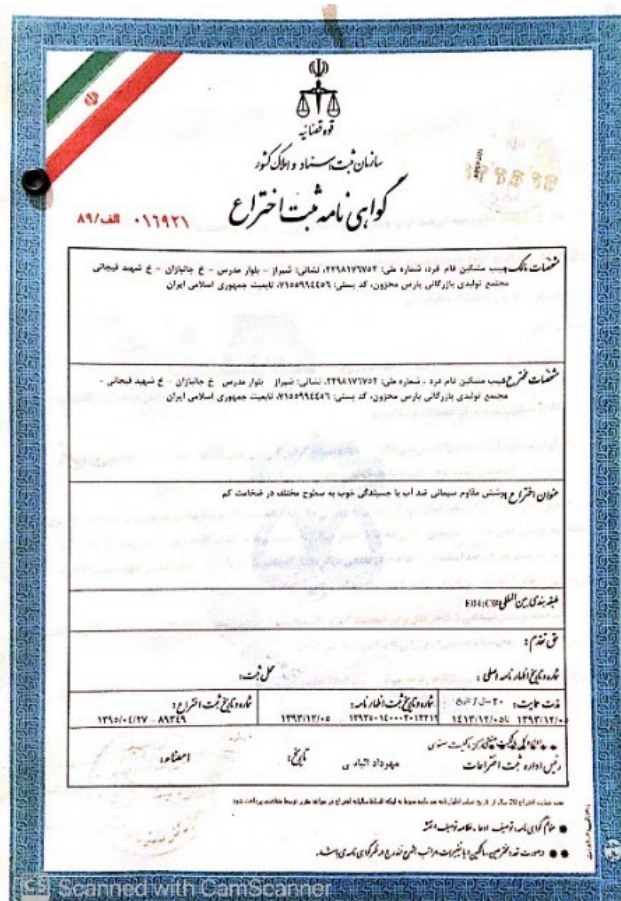 قوه قضائیه
سازمان ثبت اسناد و املاک کشور
گواهی نامه ثبت اختراع
۰۱۶۹۲۱ الف/۸۹
مشخصات مالک: حبیب مشکین فام فرد، شماره ملی: ۲۲۹۸۱۷۶۷۵۲، نشانی: شیراز - بلوار مدرس - خ جانبازان - خ شهید فیجانی
مجتمع تولیدی بازرگانی پارس مخزون، کد پستی: ۷۱۵۵۹۹۴۴۵۶، تابعیت جمهوری اسلامی ایران
مشخصات مخترع: حبیب مشکین فام فرد، شماره ملی: ۲۲۹۸۱۷۶۷۵۲، نشانی: شیراز بلوار مدرس خ جانبازان - خ شهید فیجانی -
مجتمع تولیدی بازرگانی پارس مخزون، کد پستی: ۷۱۵۵۹۹۴۴۵۶، تابعیت جمهوری اسلامی ایران
عنوان اختراع: پوشش مقاوم سیمانی ضد آب با چسبندگی خوب به سطوح مختلف در ضخامت کم
طبقه بندی بین المللی: E04; C04
حق تقدم:
شماره و تاریخ اظهارنامه اصلی: محل ثبت:
مدت حمایت: ۲۰ سال از تاریخ شماره و تاریخ ثبت اظهارنامه: شماره و تاریخ ثبت اختراع:
۱۳۹۳/۱۲/۰۵ تا ۱۴۱۳/۱۲/۰۵ ۱۳۹۳/۱۲/۰۵ ۸۹۳۴۹ - ۱۳۹۵/۰۴/۲۷
رئیس اداره ثبت اختراعات مهرداد الیاسی تاریخ: امضاء:
مدت حمایت اختراع 20 سال از تاریخ تسلیم اظهارنامه
منضم گواهی نامه، توصیف، ادعا، خلاصه توصیف و نقشه
درصورت تعدد مخترعین، مالکین و یا تغییرات مراتب بشرح مندرج در ظهر گواهی نامه می باشد.
CS Scanned with CamScanner